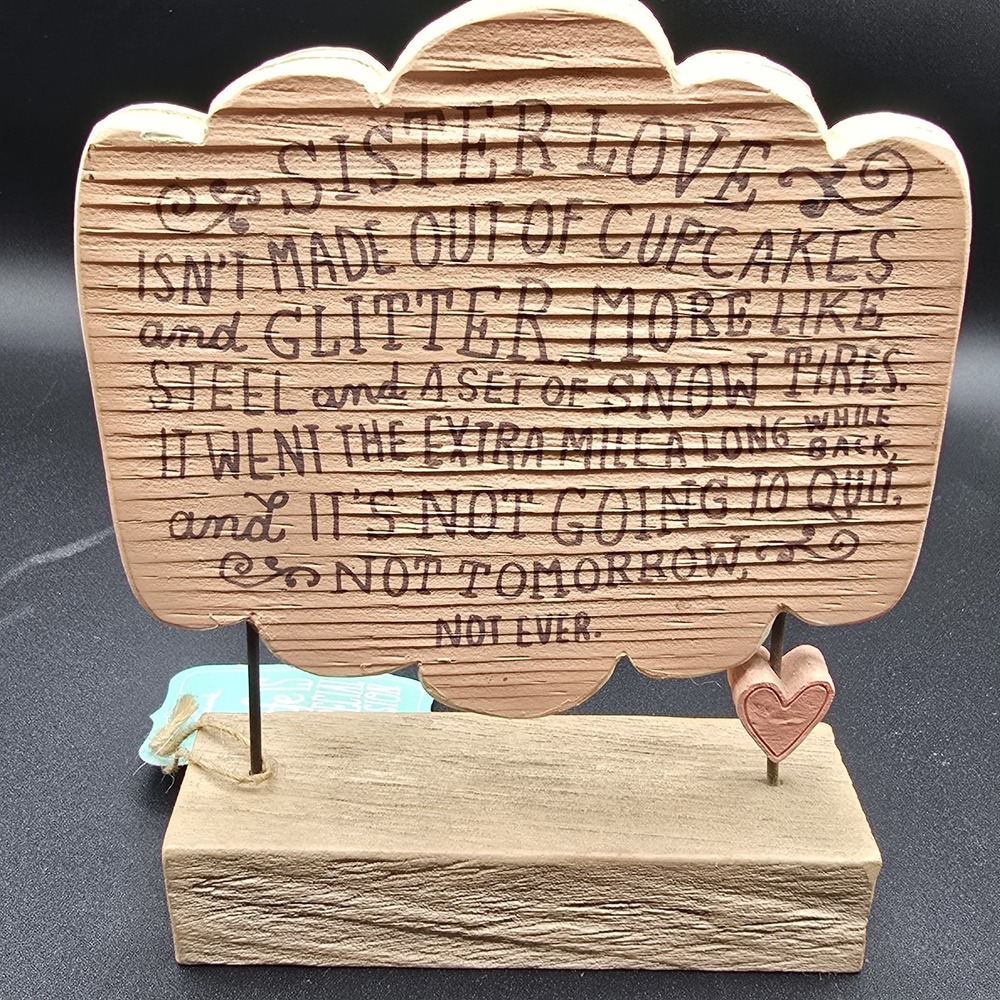 SISTER LOVE
ISN'T MADE OUT OF CUPCAKES
and GLITTER. MORE LIKE
STEEL and A SET OF SNOW TIRES.
IT WENT THE EXTRA MILE A LONG WHILE BACK,
and IT'S NOT GOING TO QUIT,
NOT TOMORROW,
NOT EVER.